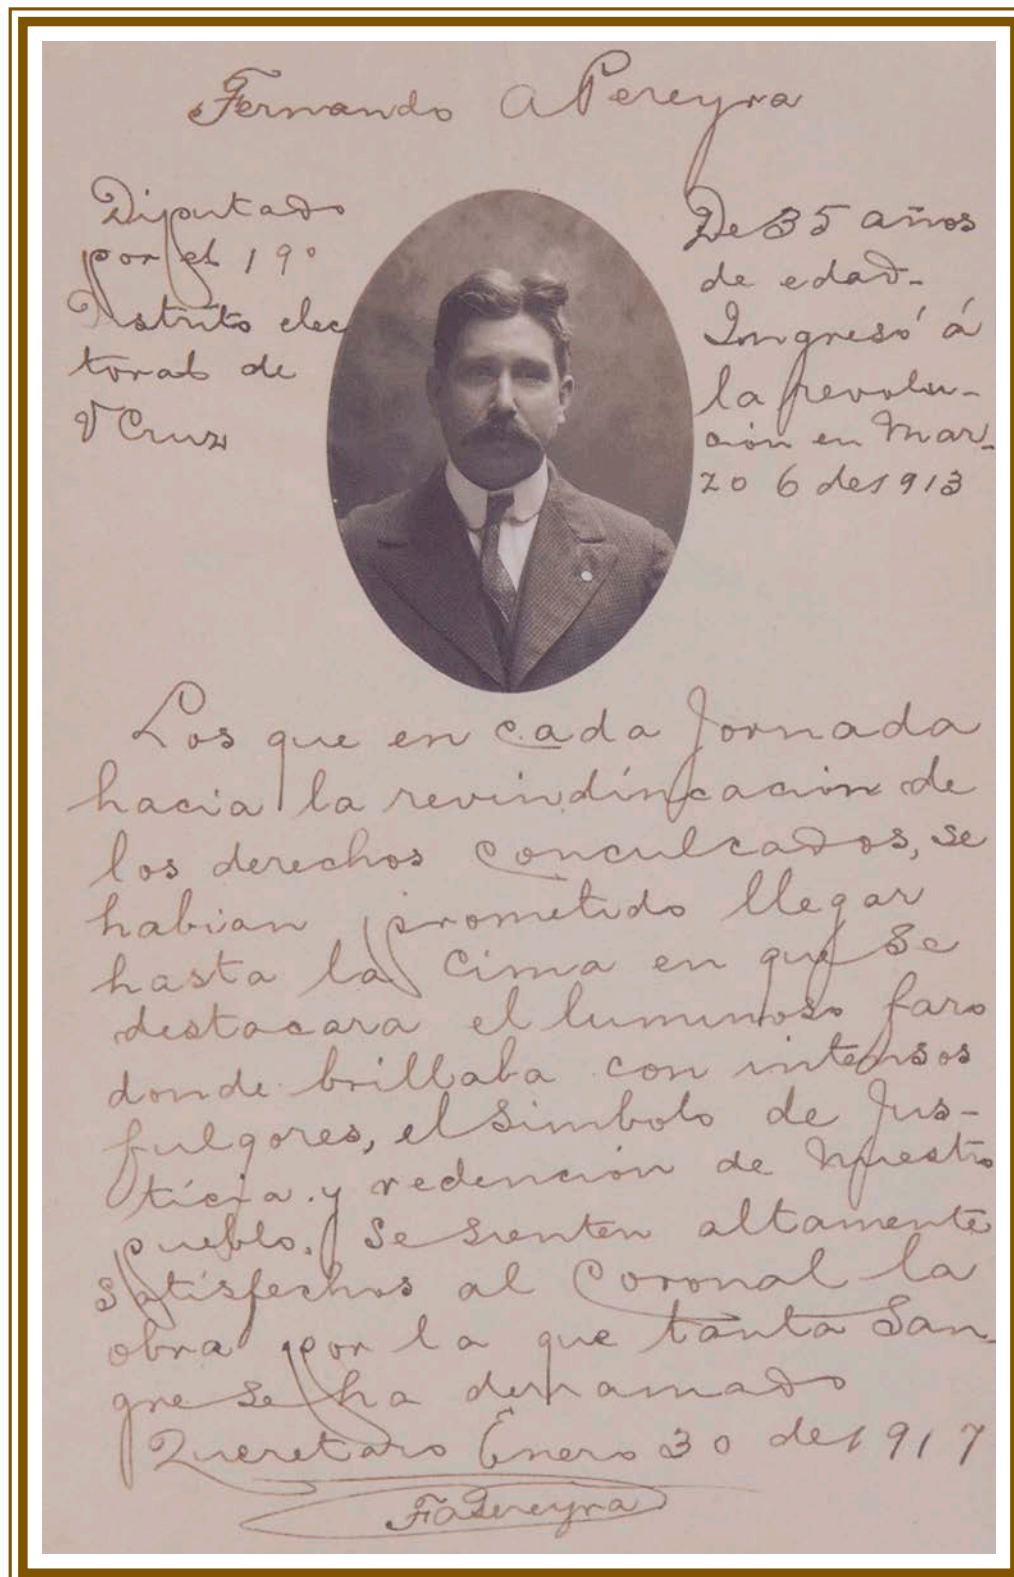 Fernando A Pereyra
Diputado
por el 19º
Distrito elec
toral de
V Cruz
De 35 años
de edad-
Ingresó á
la revolu-
ción en Mar-
zo 6 de 1913
Los que en cada Jornada
hacia la revindincación de
los derechos conculcados, se
habian prometido llegar
hasta la Cima en que se
destacara el luminoso faro
donde brillaba con intensos
fulgores, el Simbolo de Jus-
ticia y redención de Nuestro
pueblo. Se sienten altamente
satisfechos al Coronal la
obra por la que tanta San-
gre se ha derramado
Queretaro Enero 30 de 1917
FAPereyra